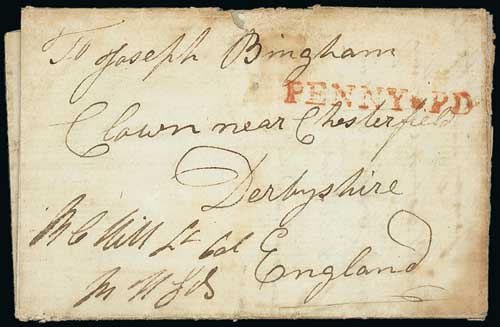 To Joseph Bingham
PENNY PD
Clown near Chesterfield
Derbyshire
Hill Lt Col
England